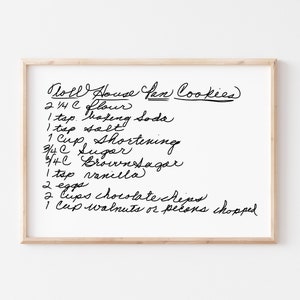 Toll House Pan Cookies
2 1/4 C flour
1 tsp baking soda
1 tsp salt
1 Cup Shortening
3/4 C Sugar
3/4 C Brown Sugar
1 tsp vanilla
2 eggs
2 cups chocolate chips
1 Cup walnuts or pecans chopped